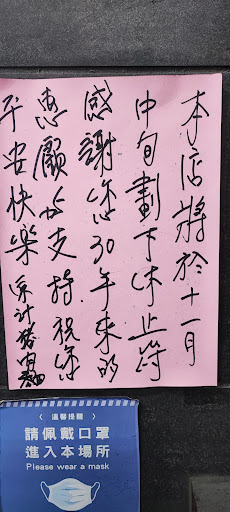 本店將於十一月
中旬劃下休止符
感謝您30年來的
惠顧与支持祝您
平安快樂
〈溫馨提醒〉
請佩戴口罩
進入本場所
Please wear a mask